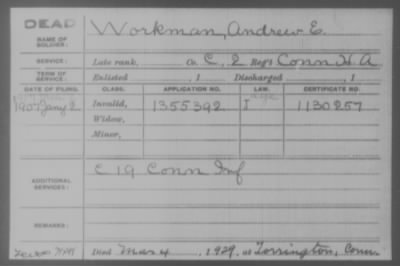 DEAD
NAME OF SOLDIER: Workman, Andrew E.
SERVICE: Late rank, Co. C, 2 Reg't Conn H A
TERM OF SERVICE: Enlisted , 1 Discharged , 1
DATE OF FILING. CLASS. APPLICATION NO. LAW. CERTIFICATE NO.
1907 Jany 2 Invalid, 1355392 I 1130257
Widow,
Minor,
ADDITIONAL SERVICES: C 19 Conn Inf
REMARKS:
Died Mar 4 , 1929, at Torrington, Conn.